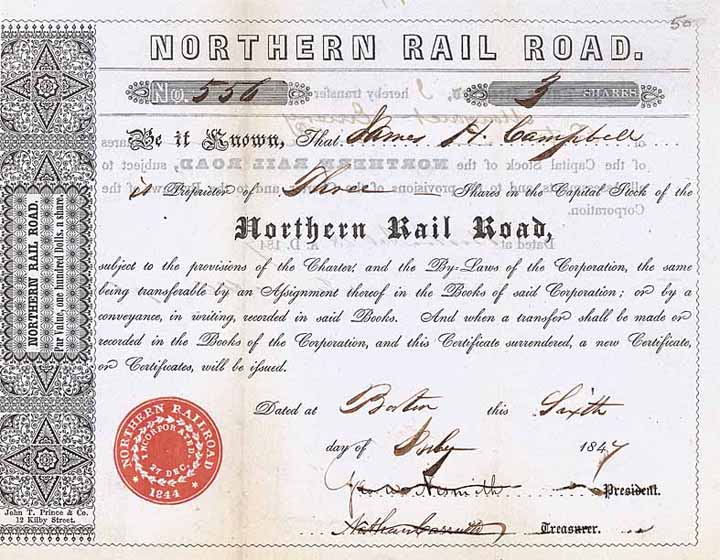 50
NORTHERN RAIL ROAD.
No. 556 3 SHARES
Be it Known, That James H. Campbell
is Proprietor of Three Shares in the Capital Stock of the
Northern Rail Road,
subject to the provisions of the Charter, and the By-Laws of the Corporation, the same
being transferable by an Assignment thereof in the Books of said Corporation; or by a
conveyance, in writing, recorded in said Books. And when a transfer shall be made or
recorded in the Books of the Corporation, and this Certificate surrendered, a new Certificate,
or Certificates, will be issued.
Dated at Boston this Sixth
day of July 1847
President.
Nathan Carruth Treasurer.
NORTHERN RAILROAD
INCORPORATED
27 DEC.
1844
NORTHERN RAIL ROAD.
Par value, one hundred Dolls. a share.
John T. Prince & Co.
12 Kilby Street.